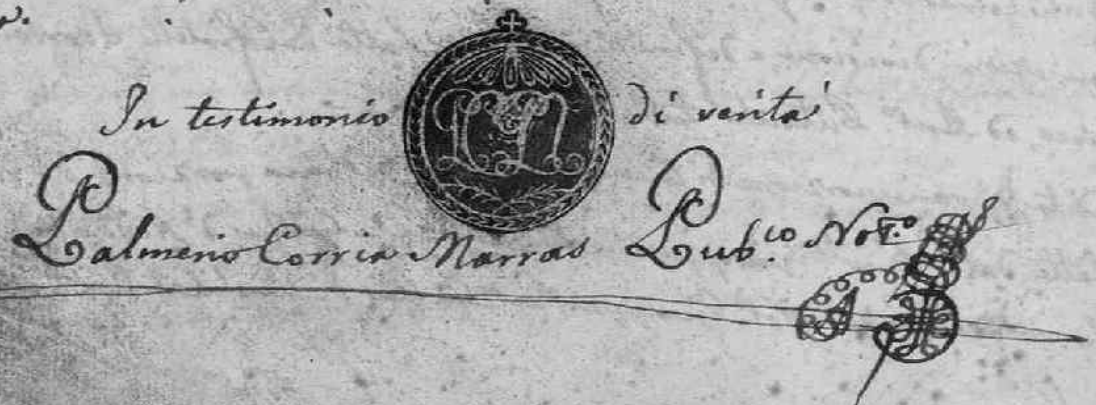 In testimonio di verità
Palmerio Corria Marras Pub.co Not.o